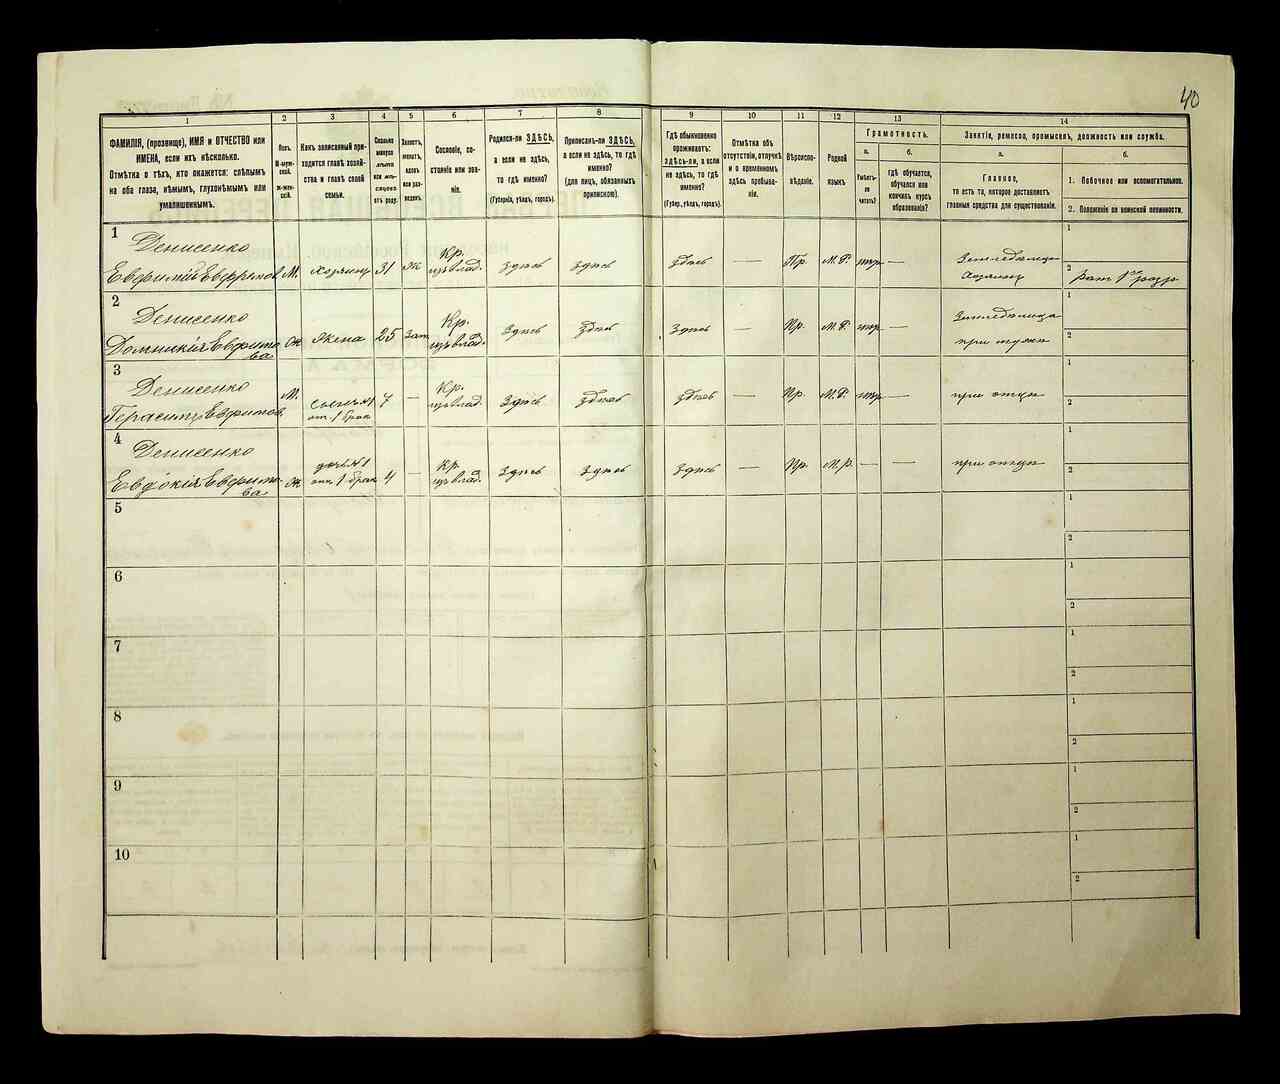 40
1
2
3
4
5
6
7
8
9
10
11
12
13
14
ФАМИЛІЯ, (прозвище), ИМЯ и ОТЧЕСТВО или
ИМЕНА, если ихъ нѣсколько.
Отмѣтка о тѣхъ, кто окажется: слѣпымъ
на оба глаза, нѣмымъ, глухонѣмымъ или
умалишеннымъ.
Полъ.
М-муж-
ской.
Ж-жен-
скій.
Какъ записанный при-
ходится главѣ хозяй-
ства и главѣ своей
семьи.
Сколько
минуло
лѣтъ
или мѣ-
сяцевъ
отъ роду.
Холостъ,
женатъ,
вдовъ
или раз-
веденъ.
Сословіе, со-
стояніе или зва-
ніе.
Родился-ли ЗДѢСЬ,
а если не здѣсь,
то гдѣ именно?
(Губернія, уѣздъ, городъ).
Приписанъ-ли ЗДѢСЬ,
а если не здѣсь, то гдѣ
именно?
(для лицъ, обязанныхъ
припискою).
Гдѣ обыкновенно
проживаетъ:
ЗДѢСЬ-ли, а если
не здѣсь, то гдѣ
именно?
(Губер., уѣздъ, городъ).
Отмѣтка объ
отсутствіи, отлучкѣ
и о временномъ
здѣсь пребыва-
ніи.
Вѣроиспо-
вѣданіе.
Родной
языкъ.
Грамотность.
а.
Умѣетъ-
ли
читать?
б.
гдѣ обучается,
обучался или
кончилъ курсъ
образованія?
Занятіе, ремесло, промыселъ, должность или служба.
а.
Главное,
то есть то, которое доставляетъ
главныя средства для существованія.
б.
1. Побочное или вспомогательное.
2. Положеніе по воинской повинности.
1
Денисенко
Евфимій Евфимов
М.
хозяинъ
31
ж
Кр.
изъ влад.
здѣсь
здѣсь
здѣсь
—
Пр.
М.Р.
—
1
2
2
Денисенко
Домникія Евфимо
ва
Ж
Жена
25
зам
Кр.
изъ влад.
здѣсь
здѣсь
здѣсь
—
Пр.
М.Р.
—
при мужѣ
1
2
3
Денисенко
Герасимъ Евфимов.
М.
сынъ №1
отъ 1 брак
7
—
Кр.
изъ влад.
здѣсь
здѣсь
здѣсь
—
Пр.
М.Р.
—
при отцѣ
1
2
4
Денисенко
Евдокія Евфимо
ва
Ж
дочь №1
отъ 1 брак
4
—
Кр
изъ влад.
здѣсь
здѣсь
здѣсь
—
Пр.
М.Р.
—
—
при отцѣ
1
2
5
1
2
6
1
2
7
1
2
8
1
2
9
1
2
10
1
2